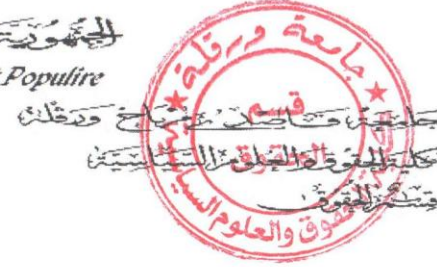 الجمهورية
Populire
جامعة قاصدي مرباح ورقلة
كلية الحقوق والعلوم السياسية
قسم الحقوق
جامعة ورقلة
قسم
الحقوق
الحقوق والعلوم السياسية